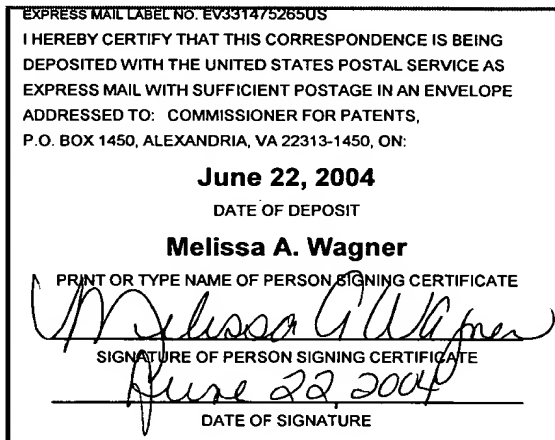 EXPRESS MAIL LABEL NO. EV331475265US
I HEREBY CERTIFY THAT THIS CORRESPONDENCE IS BEING
DEPOSITED WITH THE UNITED STATES POSTAL SERVICE AS
EXPRESS MAIL WITH SUFFICIENT POSTAGE IN AN ENVELOPE
ADDRESSED TO: COMMISSIONER FOR PATENTS,
P.O. BOX 1450, ALEXANDRIA, VA 22313-1450, ON:
June 22, 2004
DATE OF DEPOSIT
Melissa A. Wagner
PRINT OR TYPE NAME OF PERSON SIGNING CERTIFICATE
Melissa A Wagner
SIGNATURE OF PERSON SIGNING CERTIFICATE
June 22, 2004
DATE OF SIGNATURE